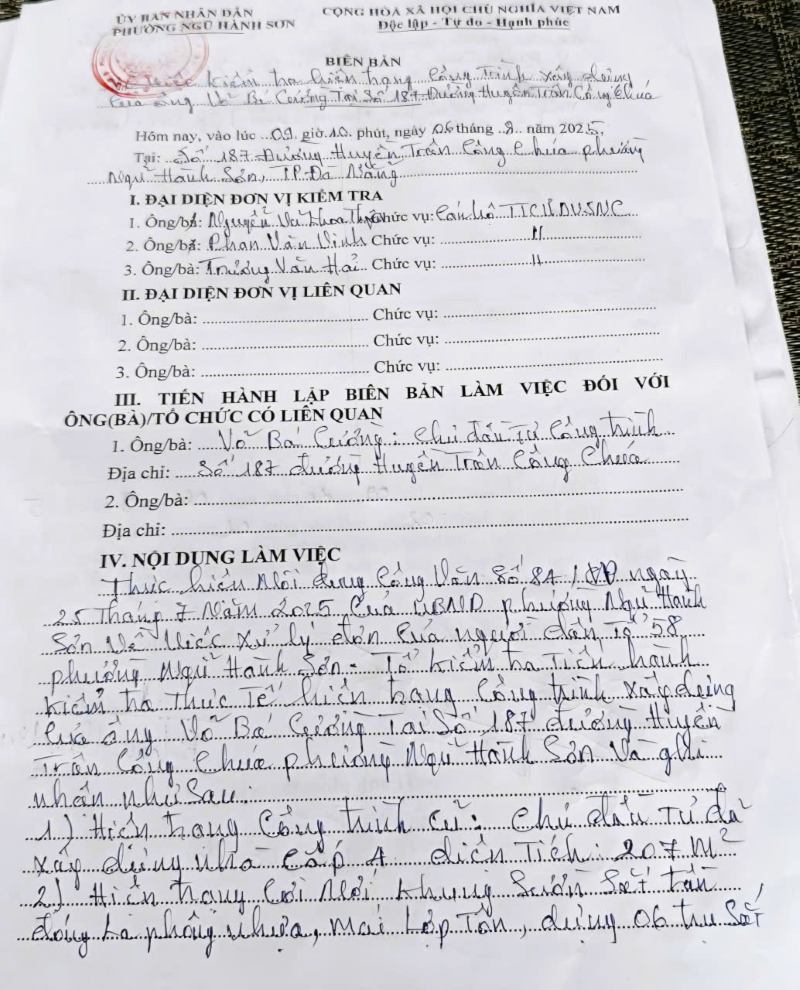 ỦY BAN NHÂN DÂN
PHƯỜNG NGŨ HÀNH SƠN
CỘNG HÒA XÃ HỘI CHỦ NGHĨA VIỆT NAM
Độc lập - Tự do - Hạnh phúc
BIÊN BẢN
kiểm tra hiện trạng công trình xây dựng
của ông Võ Bá Cường Tại Số 187 Đường Huyền Trân Công Chúa
Hôm nay, vào lúc 09 giờ 10 phút, ngày 06 tháng 8 năm 2025
Tại: Số 187 Đường Huyền Trân Công Chúa phường
Ngũ Hành Sơn, TP Đà Nẵng
I. ĐẠI DIỆN ĐƠN VỊ KIỂM TRA
1. Ông/bà: Nguyễn Vũ Khoa Chức vụ: Cán bộ
2. Ông/bà: Phan Văn Vinh Chức vụ: 11
3. Ông/bà: Trương Văn Hải Chức vụ: 11
II. ĐẠI DIỆN ĐƠN VỊ LIÊN QUAN
1. Ông/bà: Chức vụ:
2. Ông/bà: Chức vụ:
3. Ông/bà: Chức vụ:
III. TIẾN HÀNH LẬP BIÊN BẢN LÀM VIỆC ĐỐI VỚI
ÔNG(BÀ)/TỔ CHỨC CÓ LIÊN QUAN
1. Ông/bà: Võ Bá Cường: Chủ đầu tư công trình
Địa chỉ: Số 187 đường Huyền Trân Công Chúa
2. Ông/bà:
Địa chỉ:
IV. NỘI DUNG LÀM VIỆC
Thực hiện Nội dung Công Văn Số 84/ ngày
25 Tháng 7 Năm 2025 Của UBND phường Ngũ Hành
Sơn Về Việc Xử lý đơn của người dân tổ 58
phường Ngũ Hành Sơn - Tổ kiểm tra Tiến hành
kiểm tra Thực Tế hiện trạng Công trình xây dựng
của ông Võ Bá Cường Tại Số 187 đường Huyền
Trân Công Chúa phường Ngũ Hành Sơn Và ghi
nhận như Sau:
1) Hiện trạng Công trình cũ: Chủ đầu Tư đã
xây dựng nhà Cấp 4 diện Tích: 207 M²
2) Hiện trạng Cơi Nới khung Sườn Sắt
đóng La phông nhựa, mái Lợp Tôn, dựng 06 trụ Sắt